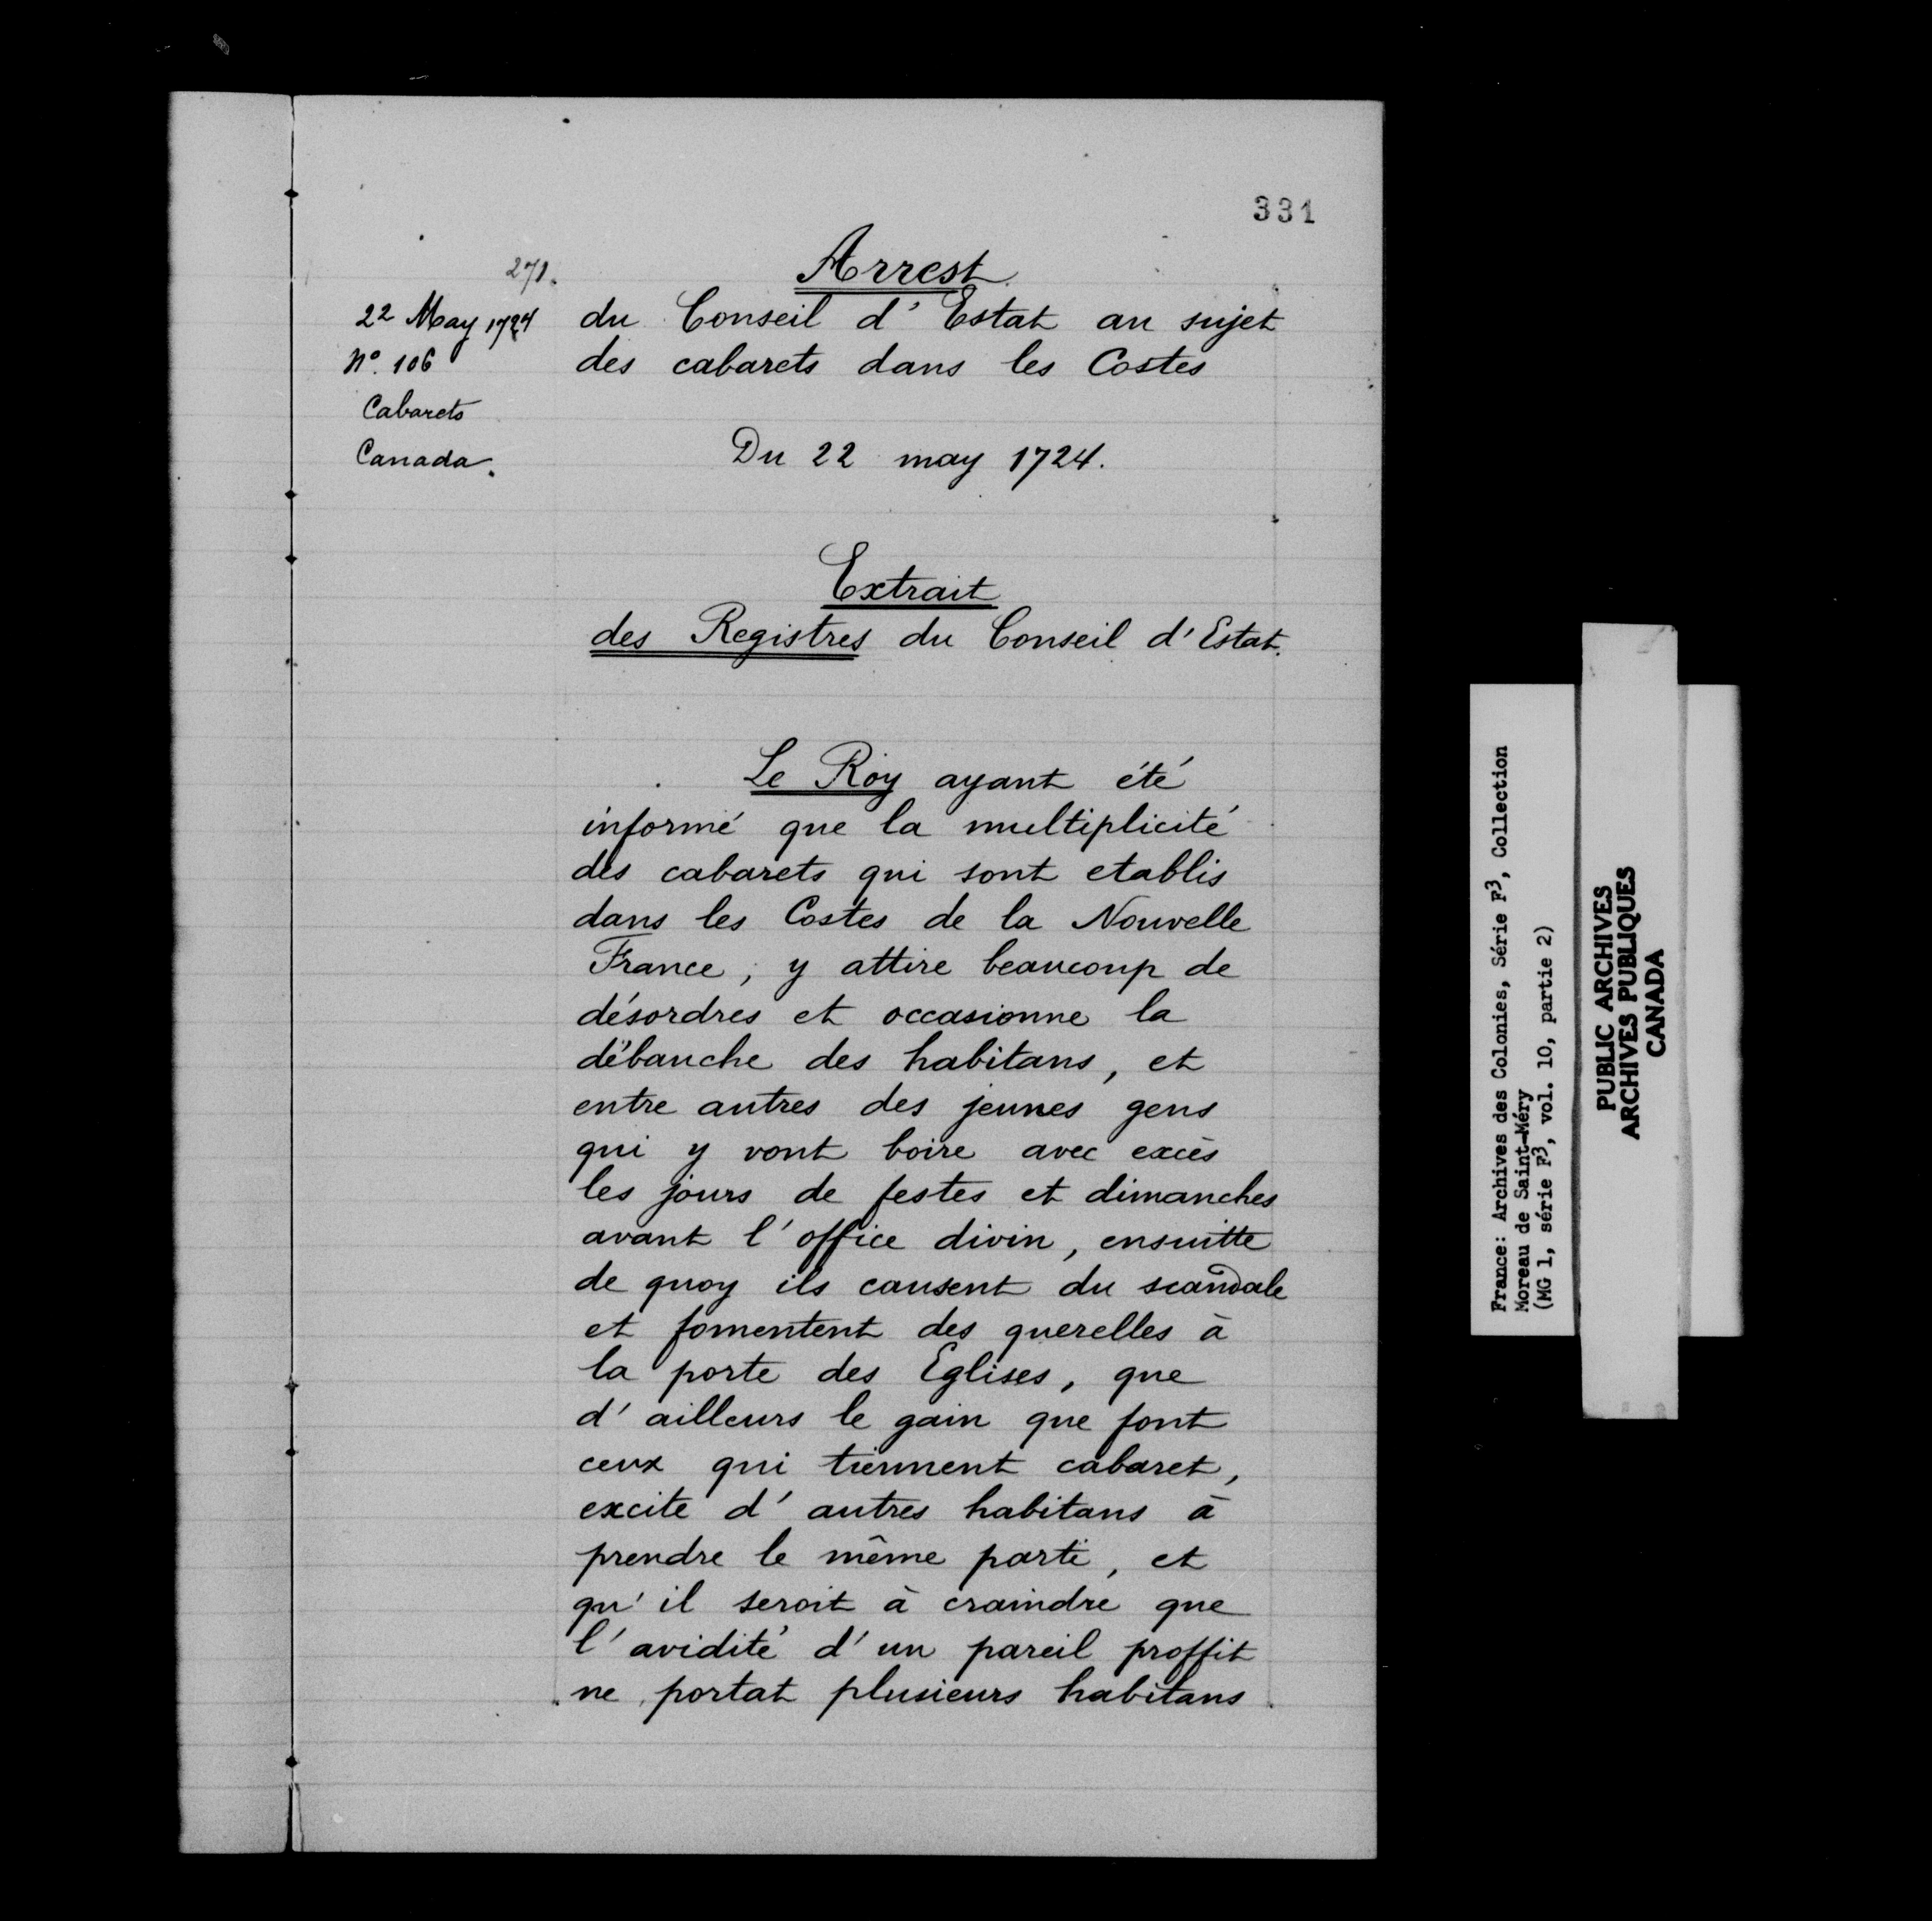 331
271.
22 May 1724
N° 106
Cabarets
Canada.
Arrest
du Conseil d'Estat au sujet
des cabarets dans les Costes
Du 22 may 1724.
Extrait
des Registres du Conseil d'Estat.
Le Roy ayant été
informé que la multiplicité
des cabarets qui sont etablis
dans les Costes de la Nouvelle
France, y attire beaucoup de
désordres et occasionne la
débauche des habitans, et
entre autres des jeunes gens
qui y vont boire avec excès
les jours de festes et dimanches
avant l'office divin, ensuitte
de quoy ils causent du scandale
et fomentent des querelles à
la porte des Eglises, que
d'ailleurs le gain que font
ceux qui tiennent cabaret,
excite d'autres habitans à
prendre le même parti, et
qu'il seroit à craindre que
l'avidité d'un pareil proffit
ne portat plusieurs habitans
France: Archives des Colonies, Série F³, Collection
Moreau de Saint-Méry
(MG 1, série F³, vol. 10, partie 2)
PUBLIC ARCHIVES
ARCHIVES PUBLIQUES
CANADA